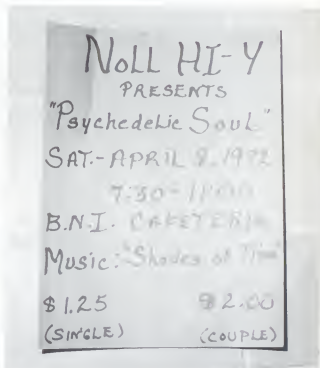 NOLL HI-Y
PRESENTS
"Psychedelic Soul"
SAT.-APRIL 8, 1972
7:30 - 11:00
B.N.I. CAFETERIA
Music: "Shades of Time"
$1.25 $2.00
(SINGLE) (COUPLE)